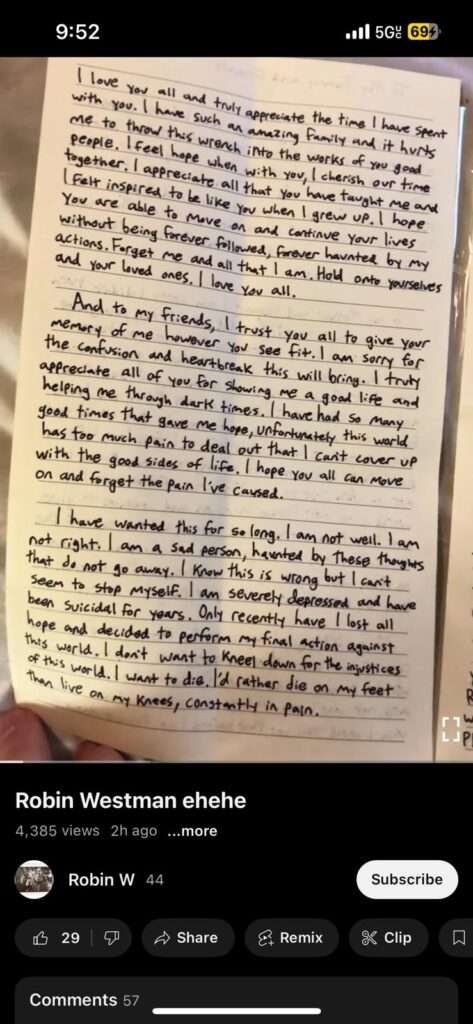 9:52
5G UC 69
I love you all and truly appreciate the time I have spent
with you. I have such an amazing family and it hurts
me to throw this wrench into the works of you good
people. I feel hope when with you, I cherish our time
together. I appreciate all that you have taught me and
I felt inspired to be like you when I grew up. I hope
you are able to move on and continue your lives
without being forever followed, forever haunted by my
actions. Forget me and all that I am. Hold onto yourselves
and your loved ones. I love you all.
And to my friends, I trust you all to give your
memory of me however you see fit. I am sorry for
the confusion and heartbreak this will bring. I truly
appreciate all of you for showing me a good life and
helping me through dark times. I have had so many
good times that gave me hope, unfortunately this world
has too much pain to deal out that I can't cover up
with the good sides of life. I hope you all can move
on and forget the pain I've caused.
I have wanted this for so long. I am not well. I am
not right. I am a sad person, haunted by these thoughts
that do not go away. I know this is wrong but I can't
seem to stop myself. I am severely depressed and have
been suicidal for years. Only recently have I lost all
hope and decided to perform my final action against
this world. I don't want to kneel down for the injustices
of this world. I want to die. I'd rather die on my feet
than live on my knees, constantly in pain.
Robin Westman ehehe
4,385 views 2h ago ...more
Robin W 44
Subscribe
29
Share
Remix
Clip
Comments 57